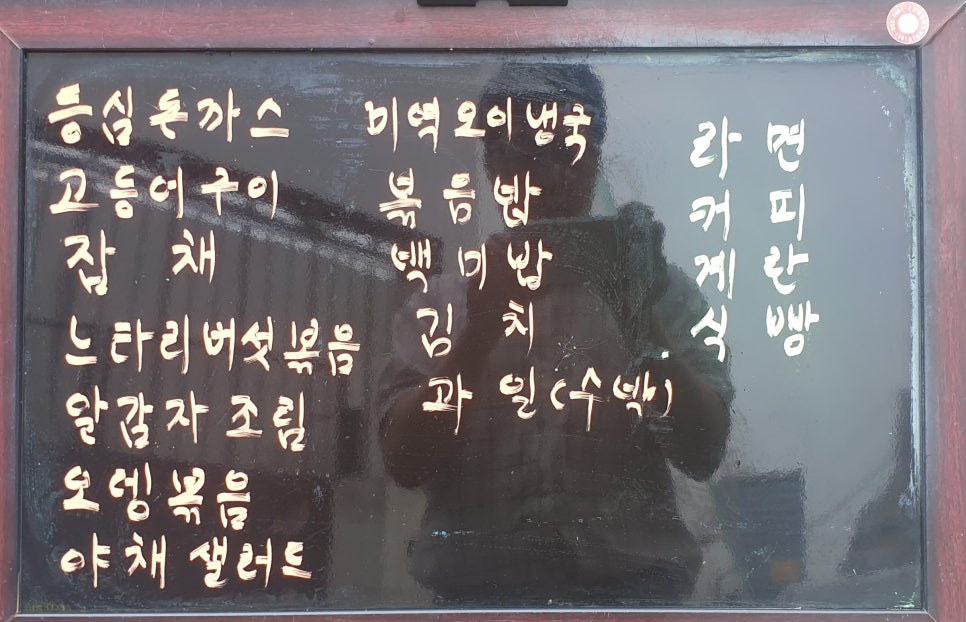 등심돈까스
고등어구이
잡채
느타리버섯볶음
알감자조림
오뎅볶음
야채샐러드
미역오이냉국
볶음밥
백미밥
김치
과일(수박)
라면
커피
계란
식빵